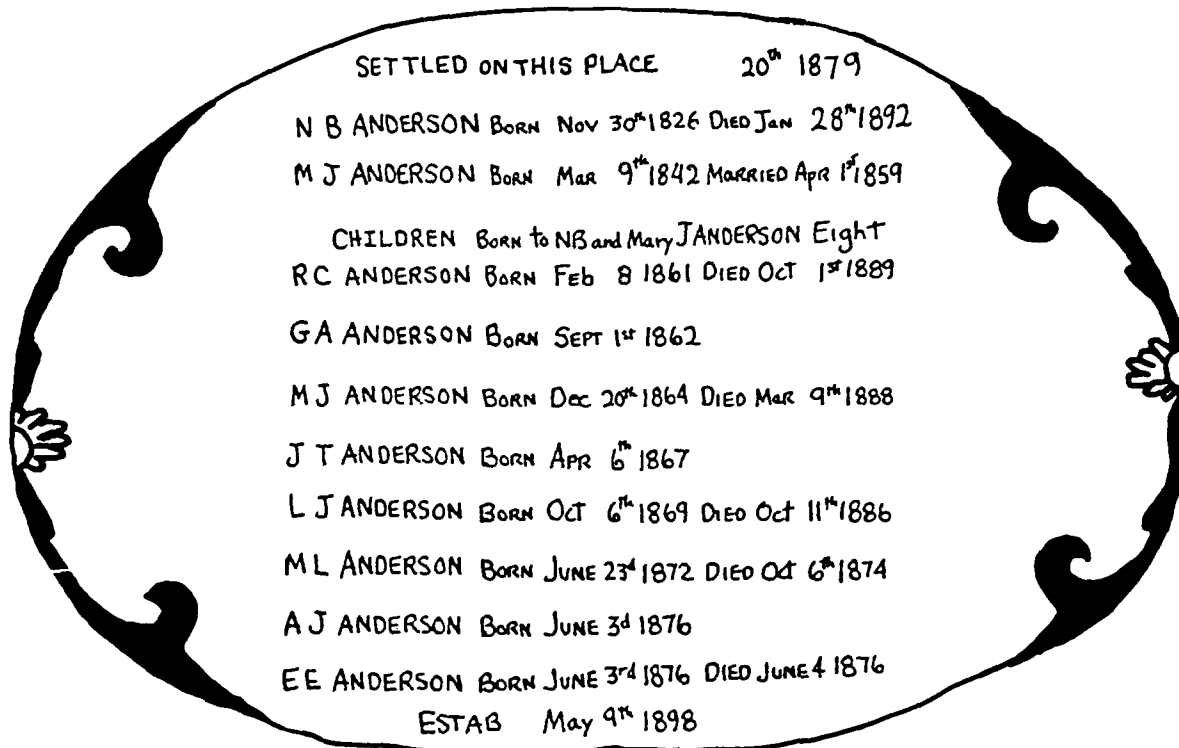 SETTLED ON THIS PLACE 20th 1879
N B ANDERSON BORN Nov 30th 1826 DIED JAN 28th 1892
M J ANDERSON BORN MAR 9th 1842 MARRIED APR 1st 1859
CHILDREN BORN to NB and Mary J ANDERSON Eight
R C ANDERSON BORN FEB 8 1861 DIED OCT 1st 1889
G A ANDERSON BORN SEPT 1st 1862
M J ANDERSON BORN Dec 20th 1864 DIED MAR 9th 1888
J T ANDERSON BORN APR 6th 1867
L J ANDERSON BORN OCT 6th 1869 DIED Oct 11th 1886
M L ANDERSON BORN JUNE 23d 1872 DIED Oct 6th 1874
A J ANDERSON BORN JUNE 3d 1876
E E ANDERSON BORN JUNE 3rd 1876 DIED JUNE 4 1876
ESTAB May 9th 1898